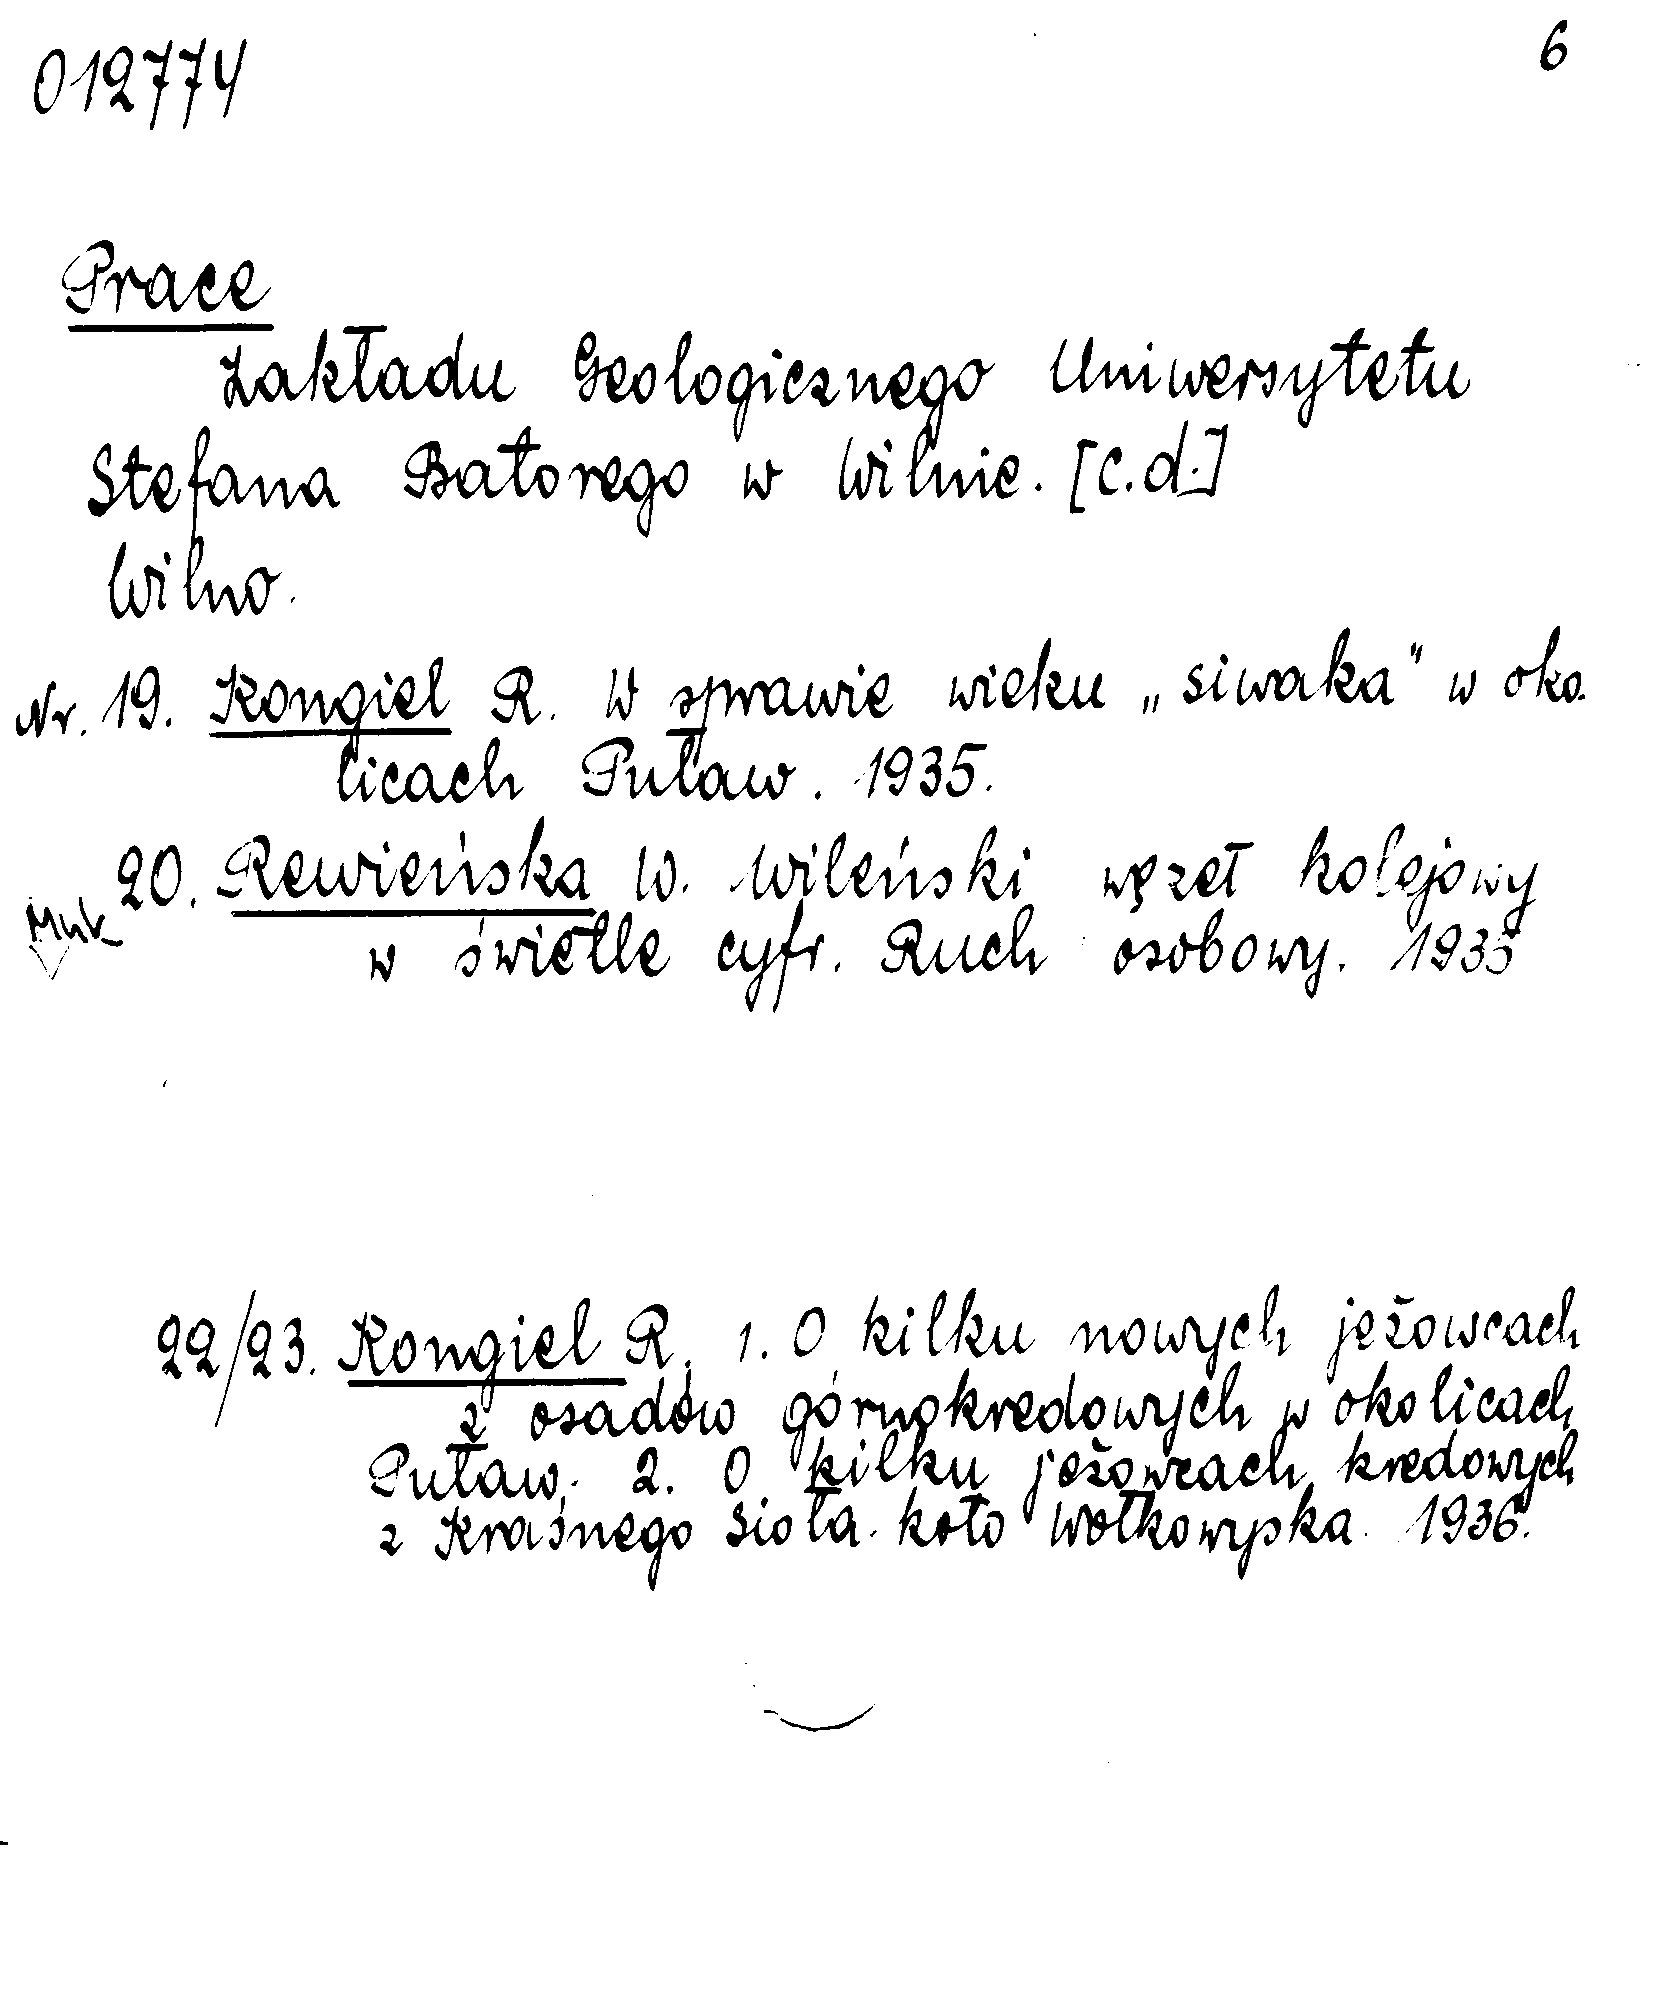 012774
6
Prace
Zakładu Geologicznego Uniwersytetu
Stefana Batorego w Wilnie. [c.d.]
Wilno.
Nr. 19. Kongiel R. W sprawie wieku „siwaka" w oko-
licach Puław. 1935.
20. Rewieńska W. Wileński węzeł kolejowy
w świetle cyfr. Ruch osobowy. 1935
22/23. Kongiel R. 1. O kilku nowych jeżowcach
z osadów górnokredowych w okolicach
Puław. 2. O kilku jeżowcach kredowych
z Kraśnego Sioła koło Wołkowyska. 1936.